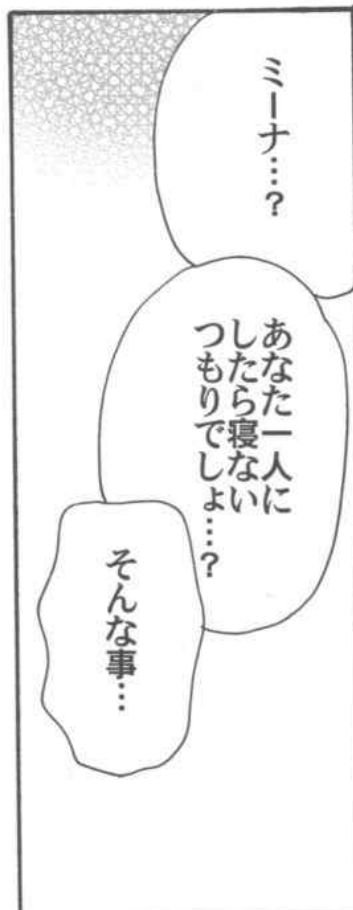 ミーナ…？
あなた一人に
したら寝ない
つもりでしょ…？
そんな事…